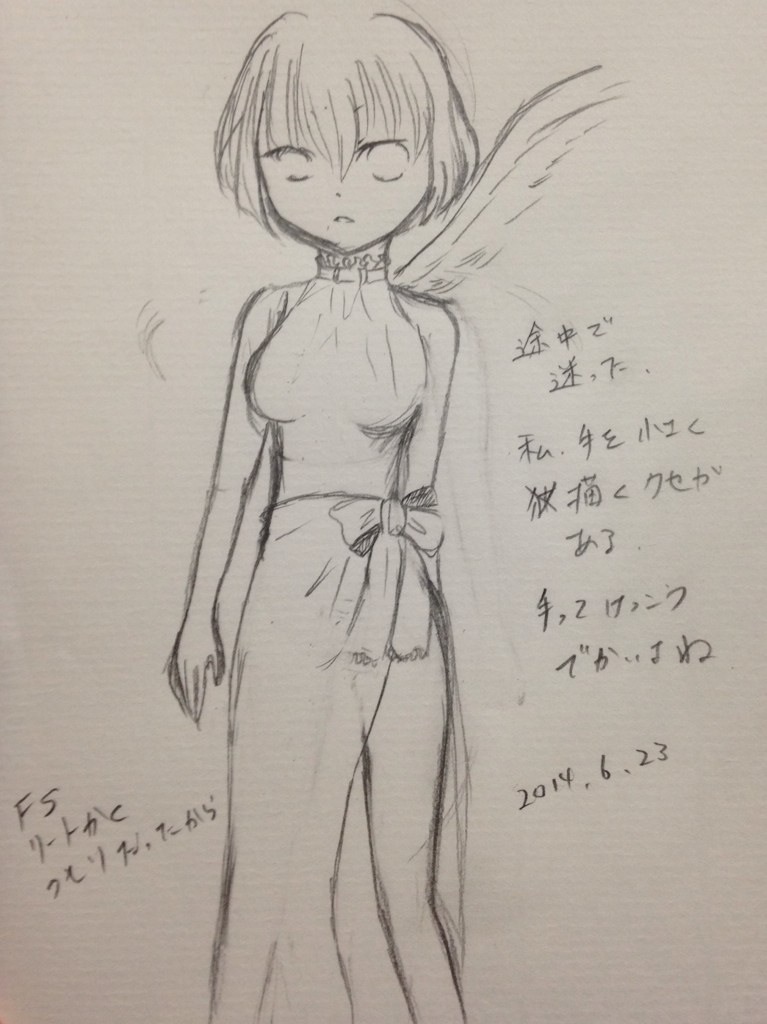 途中で
迷った.
私、手を小さく
描くクセが
ある.
手ってけっこう
でかいよね
2014.6.23
FS
リートかく
つもりだったから